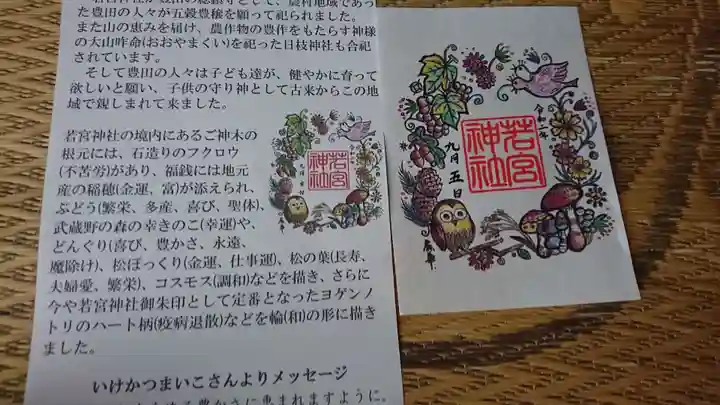 若宮神社が豊田の総鎮守として、農村地域であっ
た豊田の人々が五穀豊穣を願って祀られました。
また山の恵みを届け、農作物の豊作をもたらす神様
の大山咋命(おおやまくい)を祀った日枝神社も合祀
されています。
そして豊田の人々は子ども達が、健やかに育って
欲しいと願い、子供の守り神として古来からこの地
域で親しまれて来ました。
若宮神社の境内にあるご神木の
根元には、石造りのフクロウ
(不苦労)があり、福銭には地元
産の稲穂(金運、富)が添えられ、
ぶどう(繁栄、多産、喜び、聖体)、
武蔵野の森の幸きのこ(幸運)や、
どんぐり(喜び、豊かさ、永遠、
魔除け)、松ぼっくり(金運、仕事運)、松の葉(長寿、
夫婦愛、繁栄)、コスモス(調和)などを描き、さらに
今や若宮神社御朱印として定番となったヨゲンノ
トリのハート柄(疫病退散)などを輪(和)の形に描き
ました。
いけかつまいこさんよりメッセージ
豊かさに恵まれますように。
若宮
神社
若宮
神社
九月五日